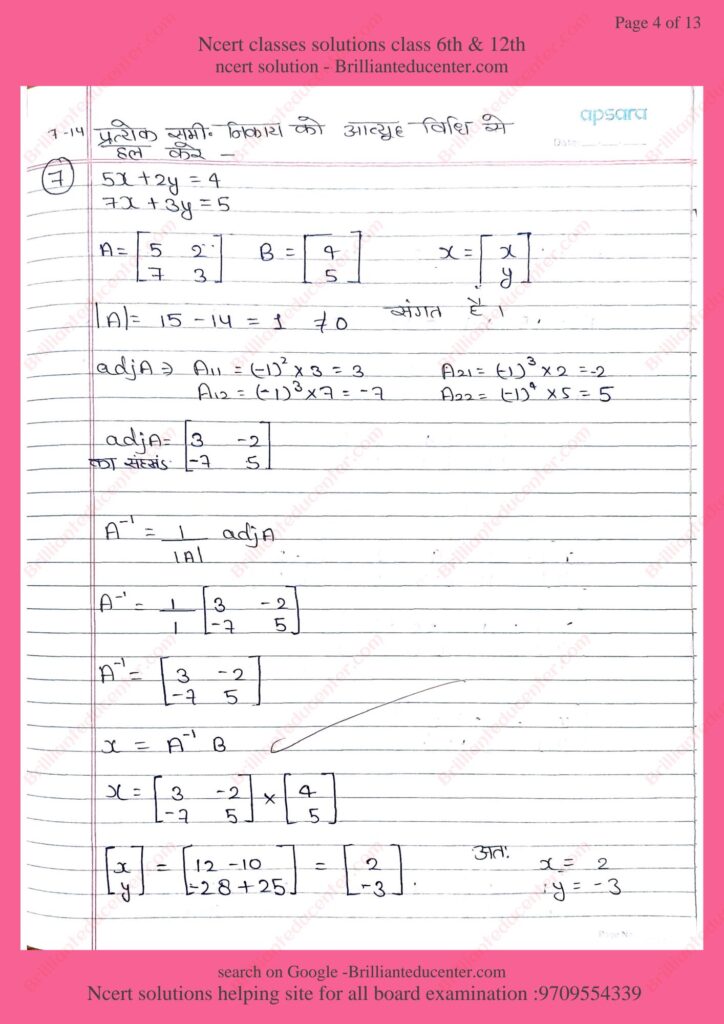 Page 4 of 13
Ncert classes solutions class 6th & 12th
ncert solution - Brillianteducenter.com
apsara
7-14 प्रत्येक समी. निकाय को आव्यूह विधि से
हल करे -
(7) 5x + 2y = 4
7x + 3y = 5
A = [5 2; 7 3] B = [4; 5] x = [x; y]
|A| = 15 - 14 = 1 ≠ 0 संगत है।
adjA ⇒ A11 = (-1)² × 3 = 3 A21 = (-1)³ × 2 = -2
A12 = (-1)³ × 7 = -7 A22 = (-1)⁴ × 5 = 5
adjA = [3 -2; -7 5]
का
A⁻¹ = 1/|A| adjA
A⁻¹ = 1/1 [3 -2; -7 5]
A⁻¹ = [3 -2; -7 5]
x = A⁻¹ B
x = [3 -2; -7 5] × [4; 5]
[x; y] = [12 - 10; -28 + 25] = [2; -3]. अतः x = 2
y = -3
search on Google -Brillianteducenter.com
Ncert solutions helping site for all board examination :9709554339